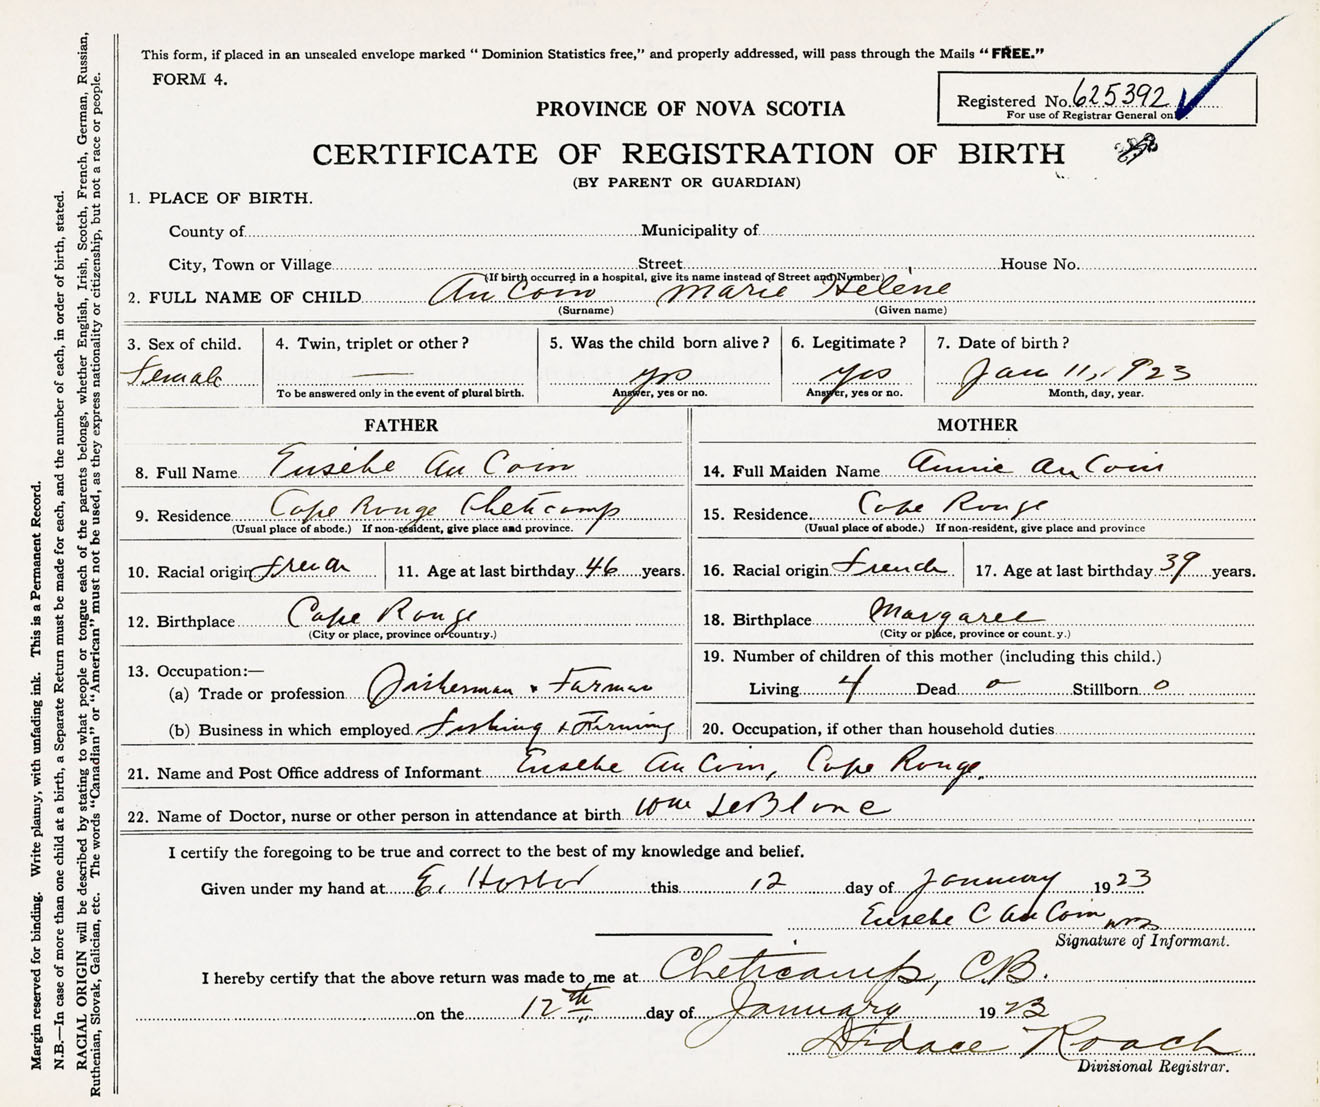 This form, if placed in an unsealed envelope marked “ Dominion Statistics free,” and properly addressed, will pass through the Mails “ FREE.”
FORM 4.
Registered No. 625392
For use of Registrar General on
PROVINCE OF NOVA SCOTIA
CERTIFICATE OF REGISTRATION OF BIRTH
(BY PARENT OR GUARDIAN)
1. PLACE OF BIRTH.
County of Municipality of
City, Town or Village Street House No.
(If birth occurred in a hospital, give its name instead of Street and Number)
2. FULL NAME OF CHILD Au Coin Marie Helene
(Surname) (Given name)
3. Sex of child. 4. Twin, triplet or other ? 5. Was the child born alive ? 6. Legitimate ? 7. Date of birth ?
Female — yes yes Jan 11, 1923
To be answered only in the event of plural birth. Answer, yes or no. Answer, yes or no. Month, day, year.
FATHER MOTHER
8. Full Name Eusébe Au Coin 14. Full Maiden Name Annie Au Coin
9. Residence Cape Rouge Cheticamp 15. Residence Cape Rouge
(Usual place of abode.) If non-resident, give place and province. (Usual place of abode.) If non-resident, give place and province
10. Racial origin French 11. Age at last birthday 46 years. 16. Racial origin French 17. Age at last birthday 39 years.
12. Birthplace Cape Rouge 18. Birthplace Margaree
(City or place, province or country.) (City or place, province or count.y.)
13. Occupation:— 19. Number of children of this mother (including this child.)
(a) Trade or profession Fisherman & Farmer Living 4 Dead 0 Stillborn 0
(b) Business in which employed Fishing & Farming 20. Occupation, if other than household duties
21. Name and Post Office address of Informant Eusebe Au Coin, Cape Rouge.
22. Name of Doctor, nurse or other person in attendance at birth Wm LeBlanc
I certify the foregoing to be true and correct to the best of my knowledge and belief.
Given under my hand at E. Harbor this 12 day of January 1923
Eusebe C Au Coin
Signature of Informant.
I hereby certify that the above return was made to me at Cheticamp, C.B.
on the 12th day of January 1923
Didace Roach
Divisional Registrar.
Margin reserved for binding. Write plainly, with unfading ink. This is a Permanent Record.
N.B.—In case of more than one child at a birth, a Separate Return must be made for each, and the number of each, in order of birth, stated.
RACIAL ORIGIN will be described by stating to what people or tongue each of the parents belongs, whether English, Irish, Scotch, French, German, Russian,
Ruthenian, Slovak, Galician, etc. The words “Canadian” or “American” must not be used, as they express nationality or citizenship, but not a race or people.